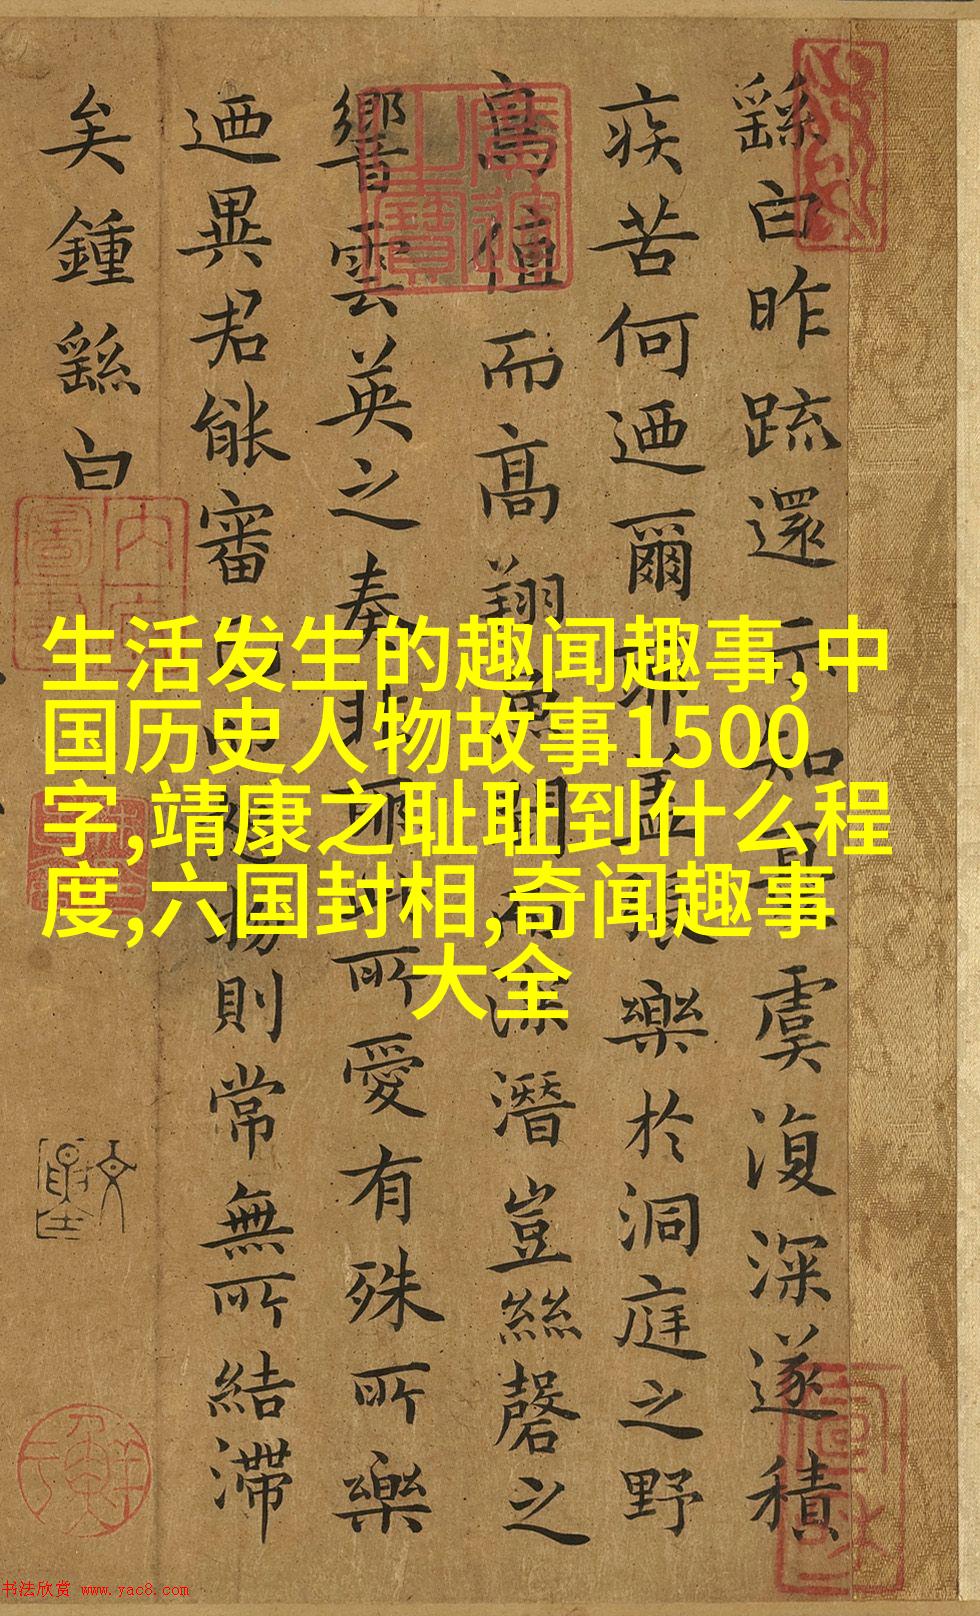 繇白昨疏還示知虞復深遂積
疾苦何迺爾耶蓋張樂於洞庭之野
鳥值而高翔魚聞而深潛豈絲磬之
響雲英之奏非耶此所愛有殊所樂
迺異君能審己而恕物則常無所結滯
矣鍾繇白
生活发生的趣闻趣事,中
国历史人物故事1500
字,靖康之耻耻到什么程
度,六国封相,奇闻趣事
大全
书法欣赏 www.yac8.com